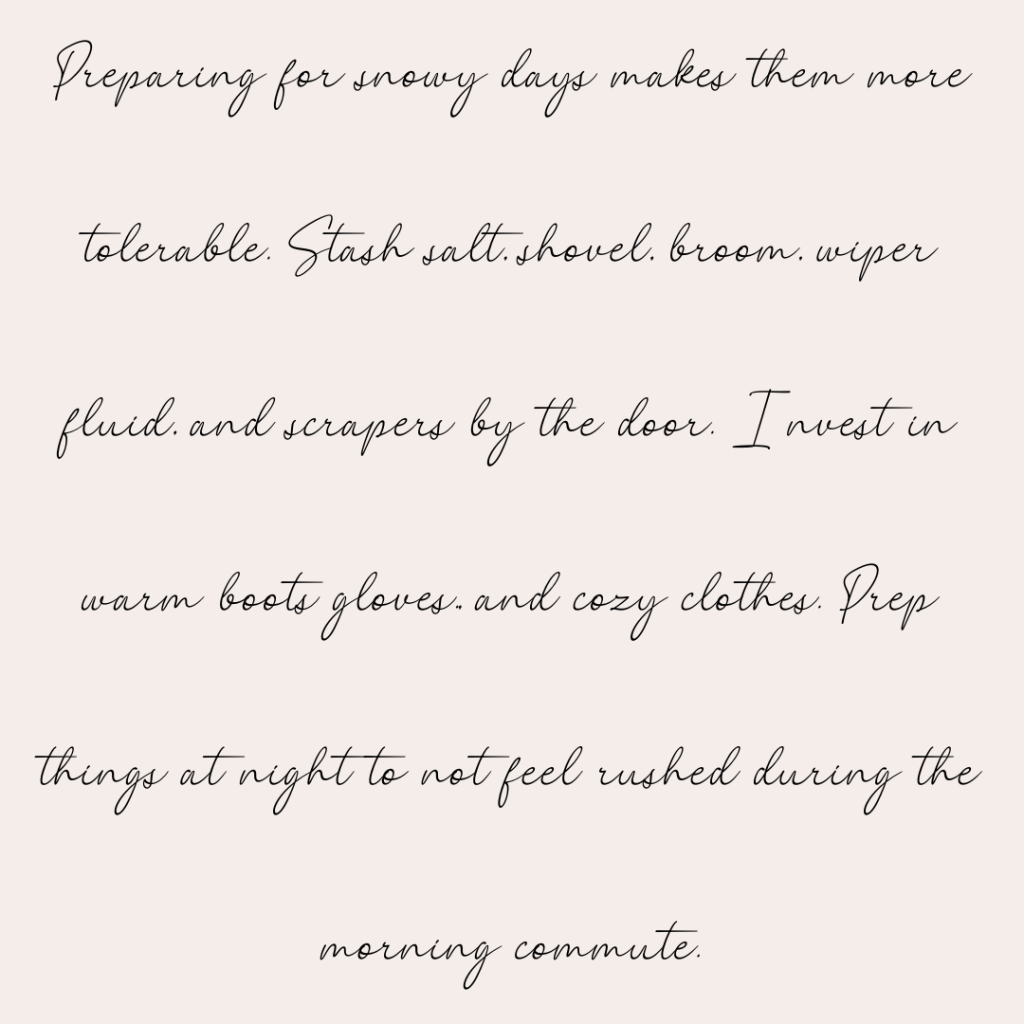 Preparing for snowy days makes them more
tolerable. Stash salt. shovel. broom. wiper
fluid. and scrapers by the door. Invest in
warm boots gloves.. and cozy clothes. Prep
things at night to not feel rushed during the
morning commute.